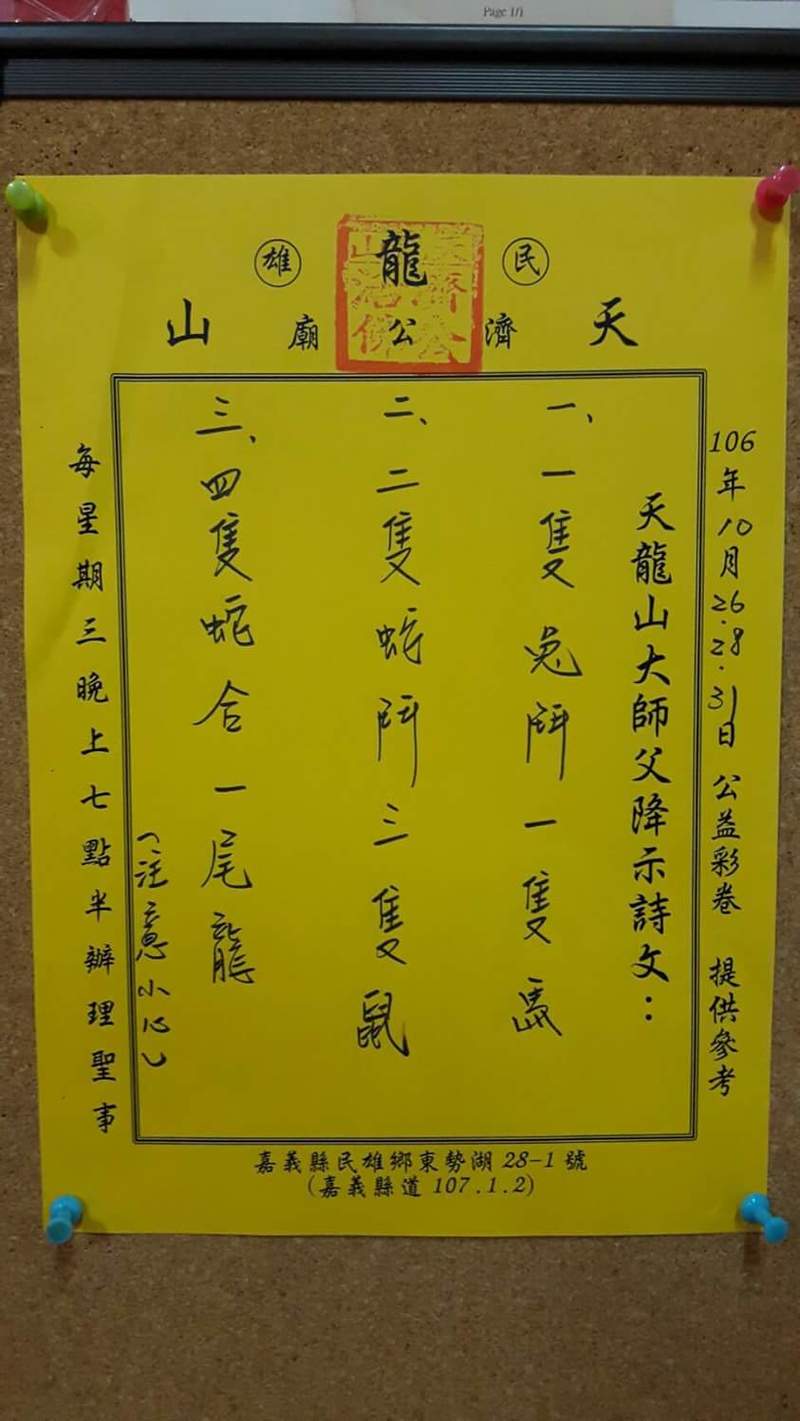 Page 1/1
民雄
天龍山
濟公廟
天龍山
濟公活佛
106年10月26.28.31日 公益彩卷 提供參考
天龍山大師父降示詩文：
一、一隻兎鬥一隻馬
二、二隻蛇鬥三隻鼠
三、四隻蛇合一尾龍
（注意小心）
每星期三晚上七點半辦理聖事
嘉義縣民雄鄉東勢湖28-1號
(嘉義縣道107.1.2)